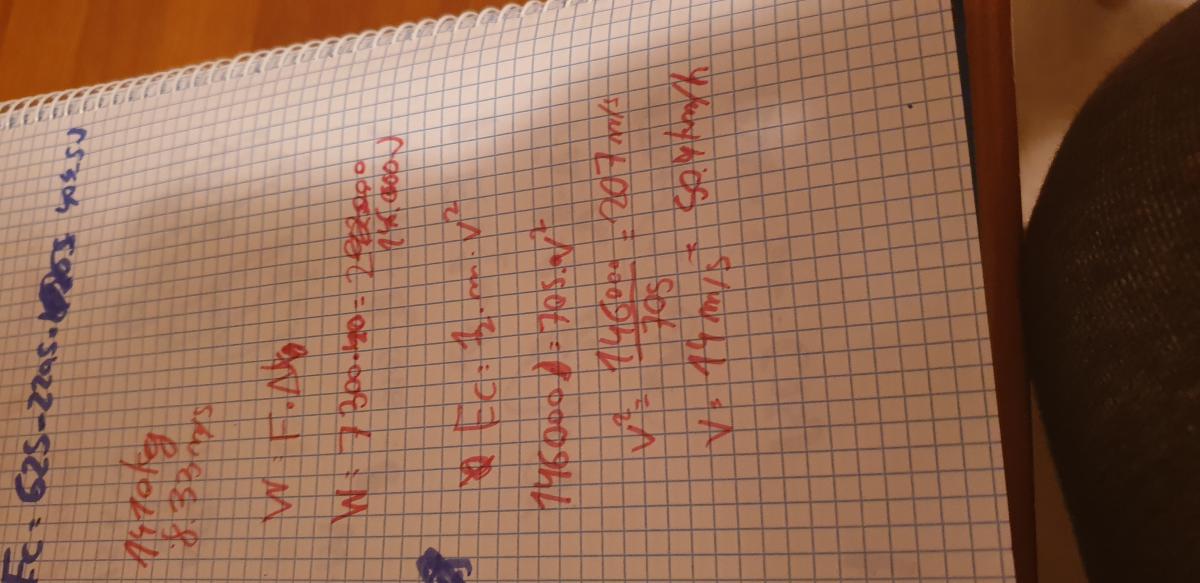 Ec = 625 - 229,5 = 405.5J
1410 kg
8.33 m/s
W = F.Δx
W = 7300.40 =
146000J
Ec = ½.m.v²
146000J = 705.v²
v² = 146000/705 = 207 m/s
v = 14 m/s → 50.4 km/h